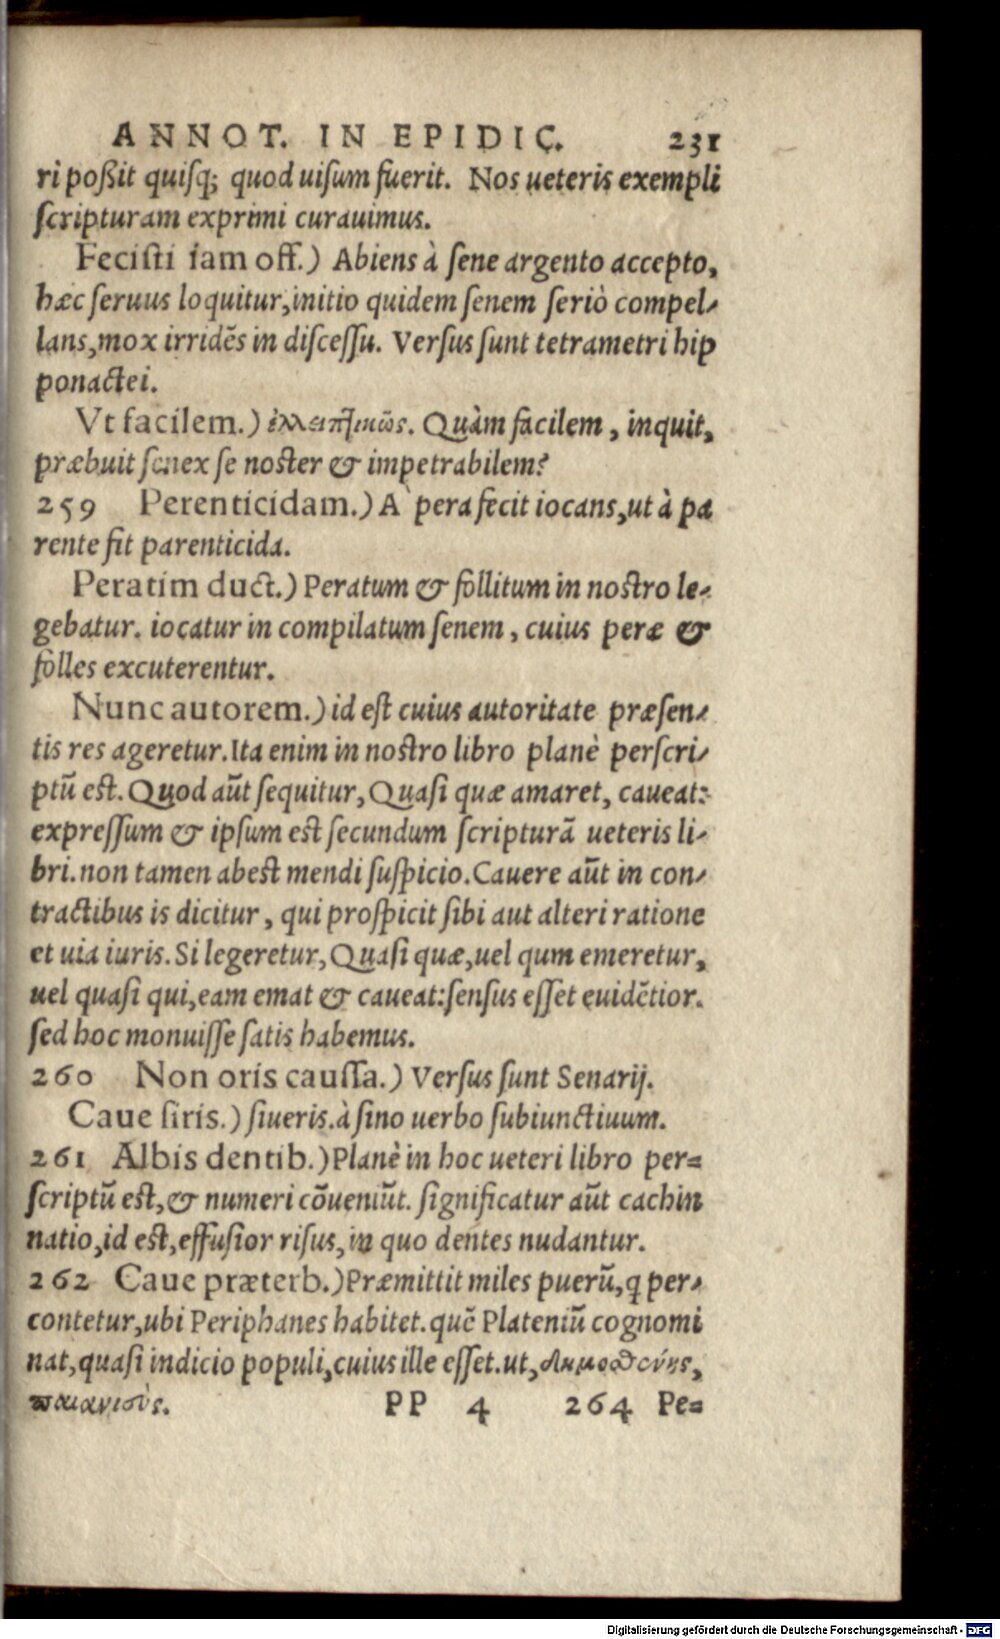 ANNOT. IN EPIDIC. 231
ri poßit quisq; quod uisum fuerit. Nos ueteris exempli
scripturam exprimi curauimus.
Fecisti iam off.) Abiens à sene argento accepto,
hæc seruus loquitur, initio quidem senem seriò compel-
lans, mox irridẽs in discessu. Versus sunt tetrametri hip
ponactei.
Vt facilem.) ἐλλειπτικῶς. Quàm facilem, inquit,
præbuit senex se noster & impetrabilem?
259 Perenticidam.) A` pera fecit iocans, ut à pa
rente fit parenticida.
Peratim duct.) Peratum & follitum in nostro le-
gebatur. iocatur in compilatum senem, cuius peræ &
folles excuterentur.
Nunc autorem.) id est cuius autoritate præsen-
tis res ageretur. Ita enim in nostro libro planè perscri-
ptũ est. Quod aũt sequitur, Quasi quæ amaret, caueat:
expressum & ipsum est secundum scripturã ueteris li-
bri. non tamen abest mendi suspicio. Cauere aũt in con-
tractibus is dicitur, qui prospicit sibi aut alteri ratione
et uia iuris. Si legeretur, Quasi quæ, uel qum emeretur,
uel quasi qui, eam emat & caueat: sensus esset euidẽtior.
sed hoc monuisse satis habemus.
260 Non oris caussa.) Versus sunt Senarij.
Caue siris.) siueris. à sino uerbo subiunctiuum.
261 Albis dentib.) Planè in hoc ueteri libro per-
scriptũ est, & numeri cõueniũt. significatur aũt cachin
natio, id est, effusior risus, in quo dentes nudantur.
262 Caue præterb.) Præmittit miles puerũ, q per-
contetur, ubi Periphanes habitet. quẽ Plateniũ cognomi
nat, quasi indicio populi, cuius ille esset. ut, Δημοσθένης,
παιανιεύς. PP 4 264 Pe-
Digitalisierung gefördert durch die Deutsche Forschungsgemeinschaft - DFG